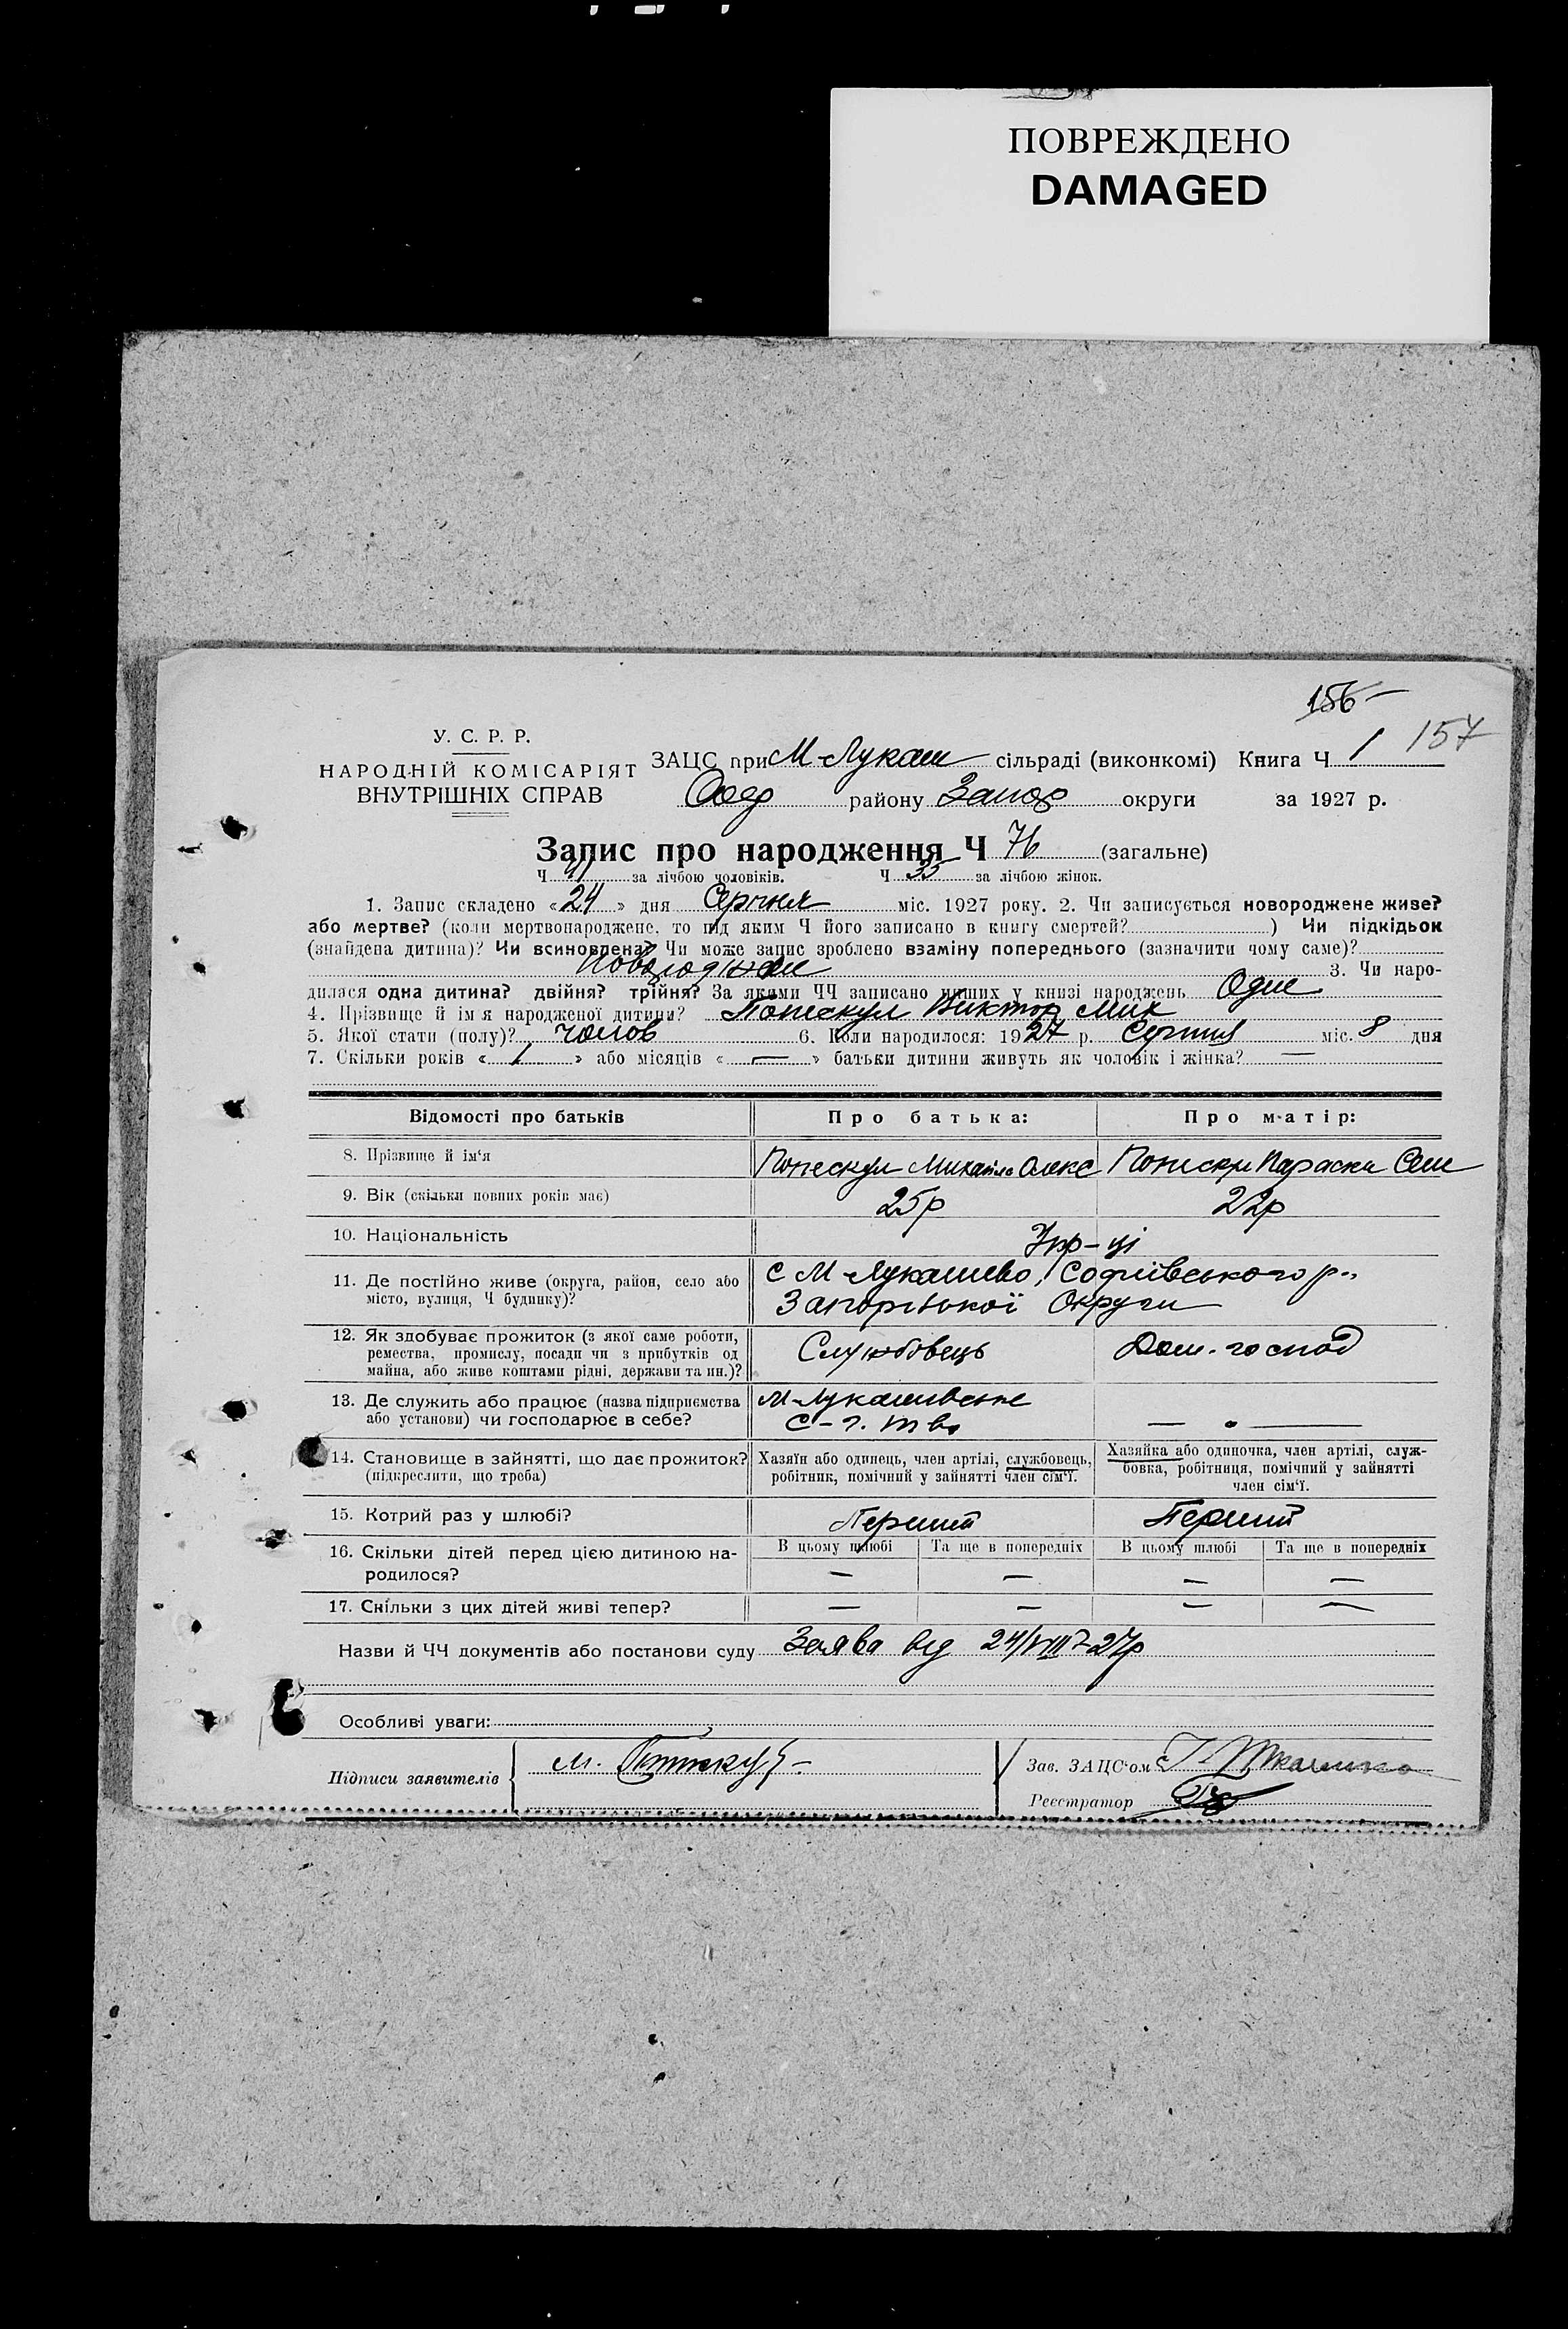 ПОВРЕЖДЕНО
DAMAGED
156
157
У. С. Р. Р.
НАРОДНІЙ КОМІСАРІЯТ
ВНУТРІШНІХ СПРАВ
ЗАЦС при М-Лукаш сільраді (виконкомі) Книга Ч 1
району Запор округи за 1927 р.
Запис про народження Ч 76 (загальне)
Ч 41 за лічбою чоловіків. Ч 35 за лічбою жінок.
1. Запис складено «24» дня Серпня міс. 1927 року. 2. Чи записується новороджене живе?
або мертве? (коли мертвонароджене, то під яким Ч його записано в книгу смертей? ) Чи підкідьок
(знайдена дитина)? Чи всиновлена? Чи може запис зроблено взаміну попереднього (зазначити чому саме)?
3. Чи наро-
дилася одна дитина? двійня? трійня? За якими ЧЧ записано инших у книзі народжень Одне
4. Прізвище й ім'я народженої дитини? Попескул Виктор Мих
5. Якої стати (полу)? чолов 6. Коли народилося: 1927 р. Серпня міс. 8 дня
7. Скільки років «1» або місяців «—» батьки дитини живуть як чоловік і жінка? —
Відомості про батьків Про батька: Про матір:
8. Прізвище й ім'я Попескул Михайло Олекс Попескул Параска Сем
9. Вік (скільки повних років має) 25р 22р
10. Національність Укр-ці
11. Де постійно живе (округа, район, село або
місто, вулиця, Ч будинку)?
С М-Лукашево, Софиївського р.,
Запорізької Округи
12. Як здобуває прожиток (з якої саме роботи,
ремества, промислу, посади чи з прибутків од
майна, або живе коштами рідні, держави та ин.)?
Службовець Дом-господ
13. Де служить або працює (назва підприємства
або установи) чи господарює в себе?
М-Лукашивське
С-г. т во
— • —
14. Становище в зайнятті, що дає прожиток?
(підкреслити, що треба)
Хазяїн або одинець, член артілі, службовець,
робітник, помічний у зайнятті член сім'ї.
Хазяйка або одиночка, член артілі, служ-
бовка, робітниця, помічний у зайнятті
член сім'ї.
15. Котрий раз у шлюбі? Перший Перший
16. Скільки дітей перед цією дитиною на-
родилося?
В цьому шлюбі Та ще в попередніх В цьому шлюбі Та ще в попередніх
— — — —
17. Скільки з цих дітей живі тепер? — — — —
Назви й ЧЧ документів або постанови суду Заява від 24/VIII-27р
Особливі уваги:
Підписи заявителів М.
Зав. ЗАЦС'ом
Реєстратор